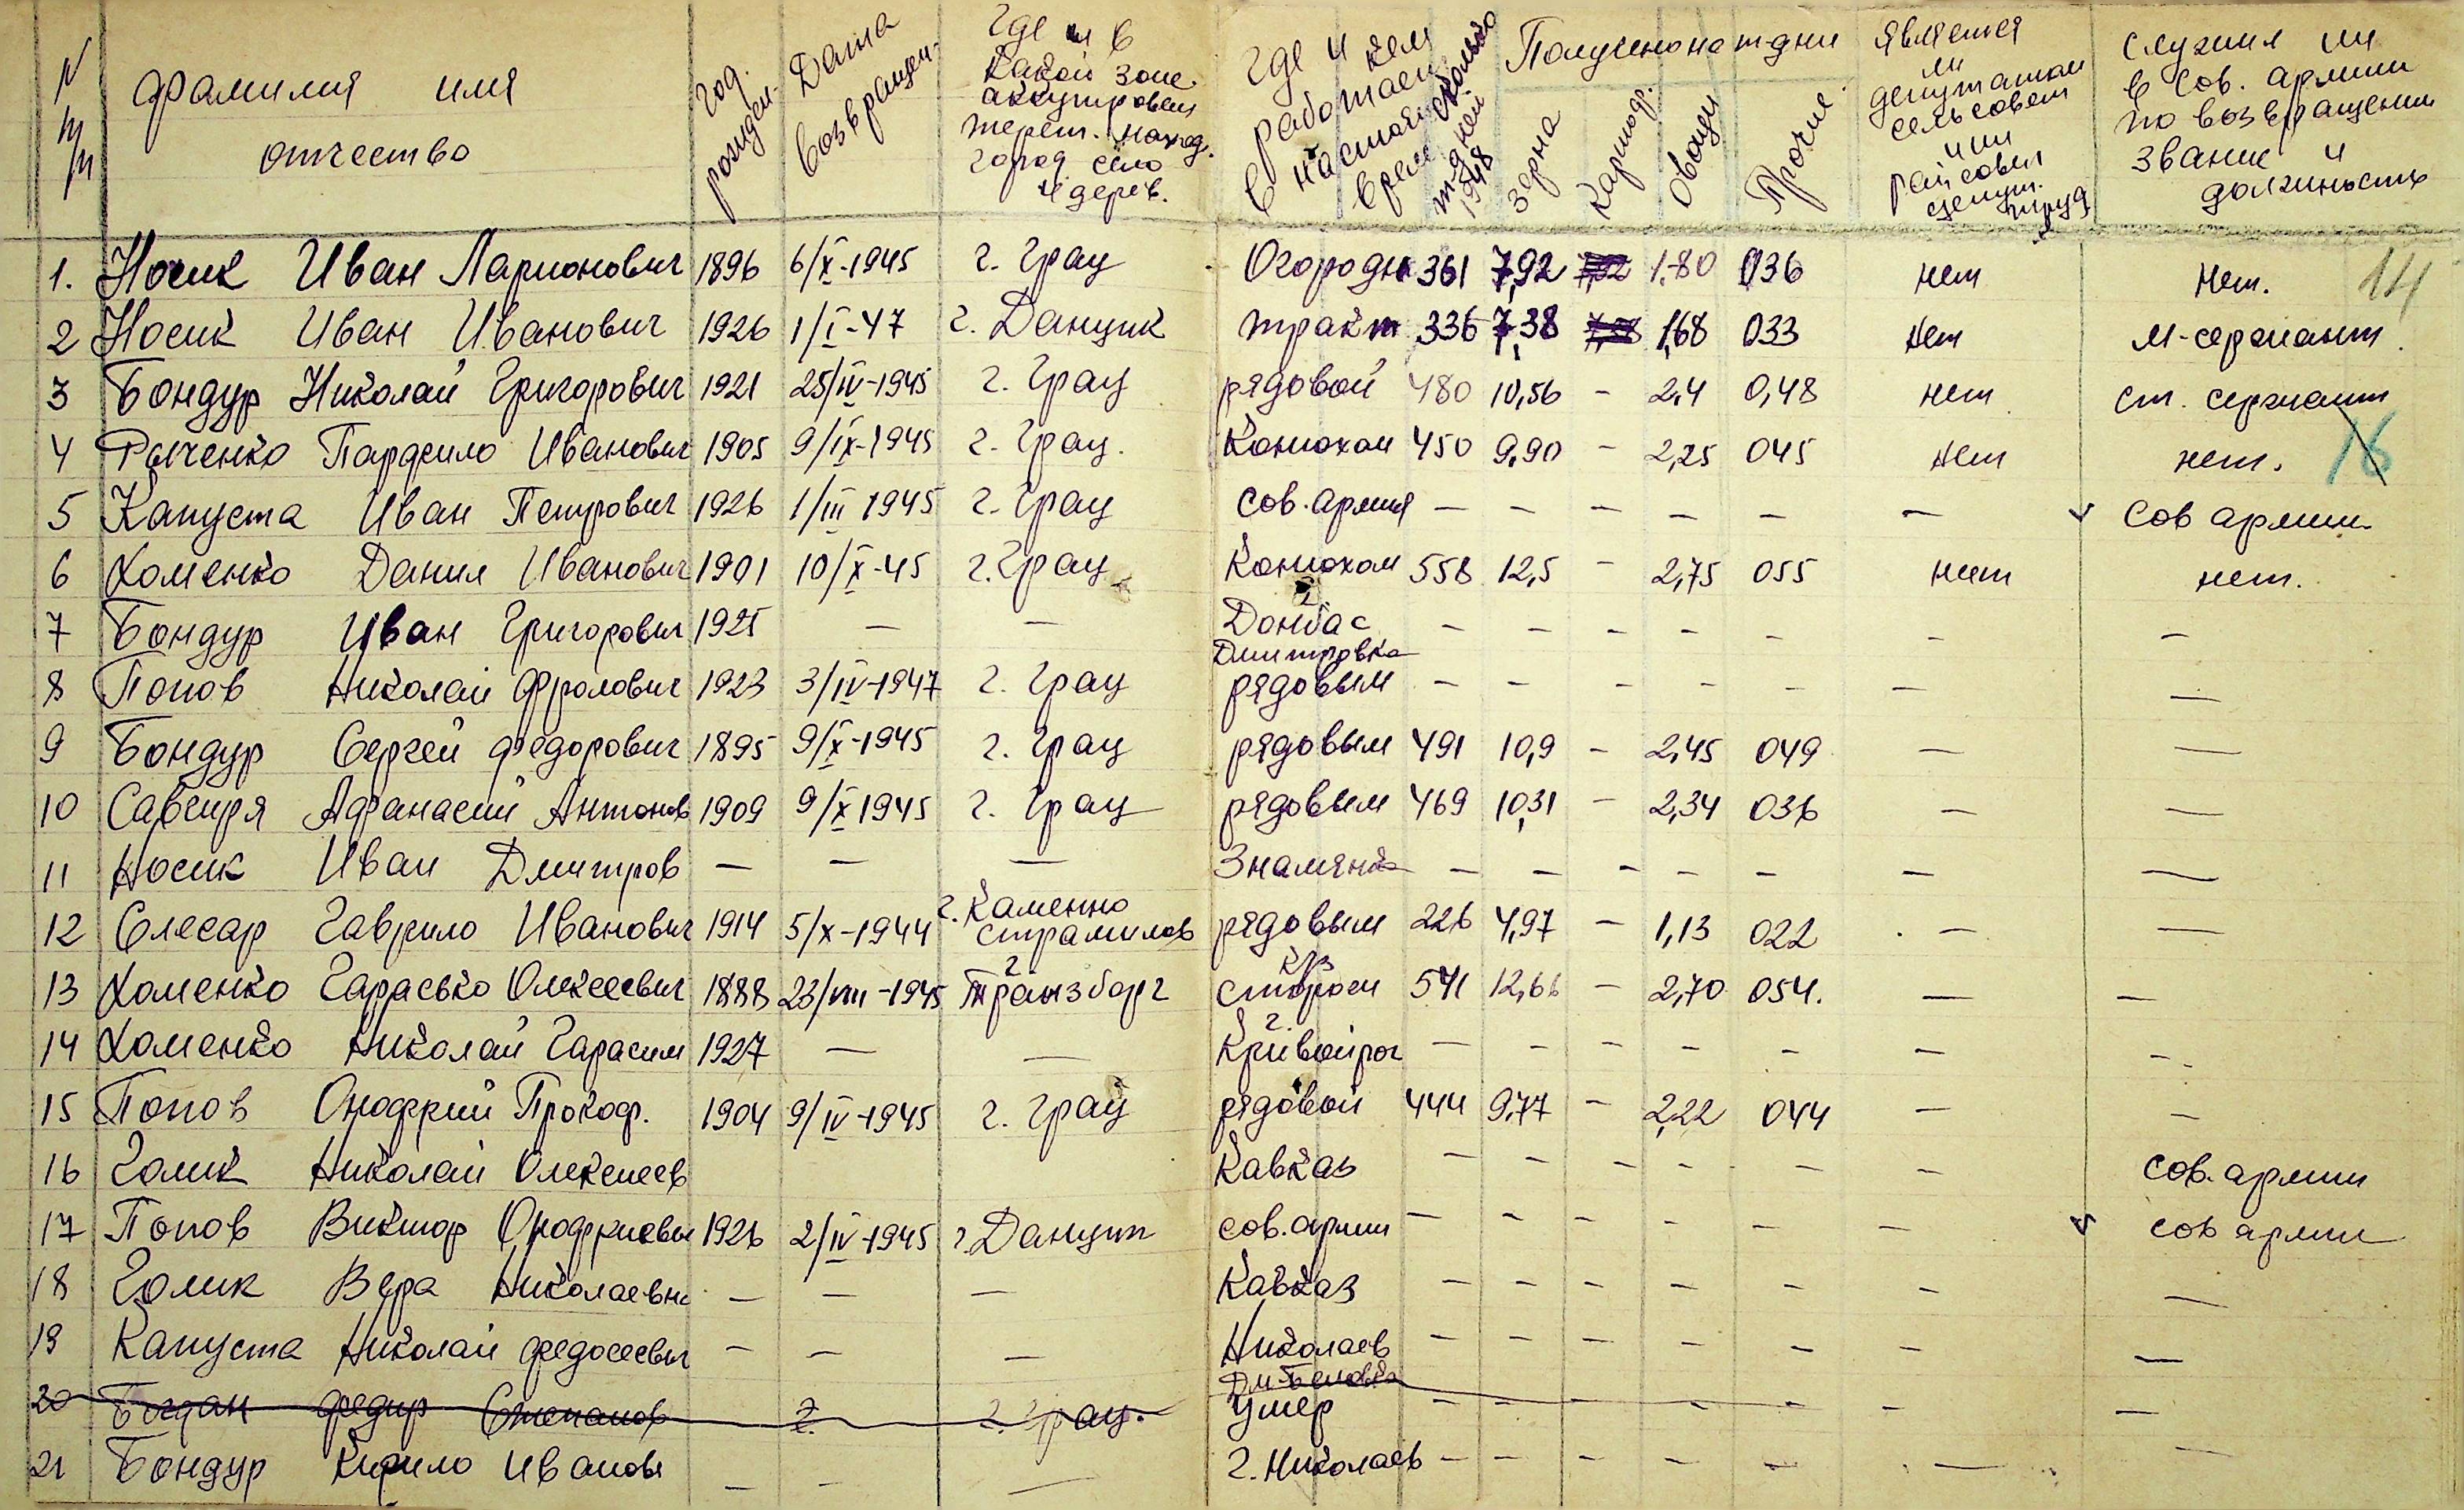 N п/п Фамилия имя отчество Год рожден. Дата возвращен. Где и в какой зоне аккупирован терит. наход. город село и дерев. Где и кем работает в настоящ. время сколько т-дней 1948 Получено на т-дни зерна картоф. Овощи Прочие является ли депутатом сельсовет или райсовет депут. труд служил ли в Сов. армии по возвращении звание и должность
1. Носик Иван Ларионович 1896 6/X-1945 г. Грац Огородн 361 7,92 1.80 036 нет Нет. 14
2 Носик Иван Иванович 1926 1/I-47 г. Данцик тракт 336 7,38 1,68 033 нет м-сержант.
3 Бондур Николай Григорович 1921 25/IV-1945 г. Грац рядовой 480 10,56 - 2,4 0,48 нет ст. сержант
4 Парфило Иванович 1905 9/IX-1945 г. Грац. Конюхом 450 9,90 - 2,25 045 нет нет. 16
5 Капуста Иван Петрович 1926 1/III 1945 г. Грац сов. армия — — — — — — Сов армии.
6 Хоменко Данил Иванович 1901 10/X-45 г. Грац Конюхом 558 12,5 - 2,75 055 нет нет.
7 Бондур Иван Григорович 1925 — — Донбас - - - - - - —
Дмитровка
8 Попов Николай Фролович 1923 3/IV-1947 г. Грац рядовым - - - - - — —
9 Бондур Сергей Федорович 1895 9/X-1945 г. Грац рядовым 491 10,9 - 2,45 049 — —
10 Афанасий Антонов 1909 9/X 1945 г. Грац рядовым 469 10,31 - 2,34 036 — —
11 Носик Иван Дмитров — — — Знамянка — - - - - — —
12 Слесар Гаврило Иванович 1914 5/X-1944 г. Каменно страмилов рядовым 226 4,97 - 1,13 022 — —
13 Хоменко Гарасько Олексеевич 1888 23/VIII-1945 г. Транзборг сторож 541 12,66 - 2,70 054. — —
14 Хоменко Николай Гарасим 1927 — — г. Кривойрог - - - - - — -
15 Попов Онофрий Прокоф. 1904 9/IV-1945 г. Грац рядовой 444 9,77 - 2,22 044 — —
16 Голик Николай Олексеев Кавказ — - - - - — сов. армии
17 Попов Виктор Онофриевич 1926 2/IV-1945 г. Данцит сов. армии — - - - - — сов армии
18 Голик Вера Николаевна — — — Кавказ - - - - - - —
19 Капуста Николай Федосеевич - - — Николаев - - - - - - —
20 Богдан Федир Степанов г. Грац. Умер - - - - - - —
21 Бондур Кирило Иванов — - — г. Николаев - - - - - — -